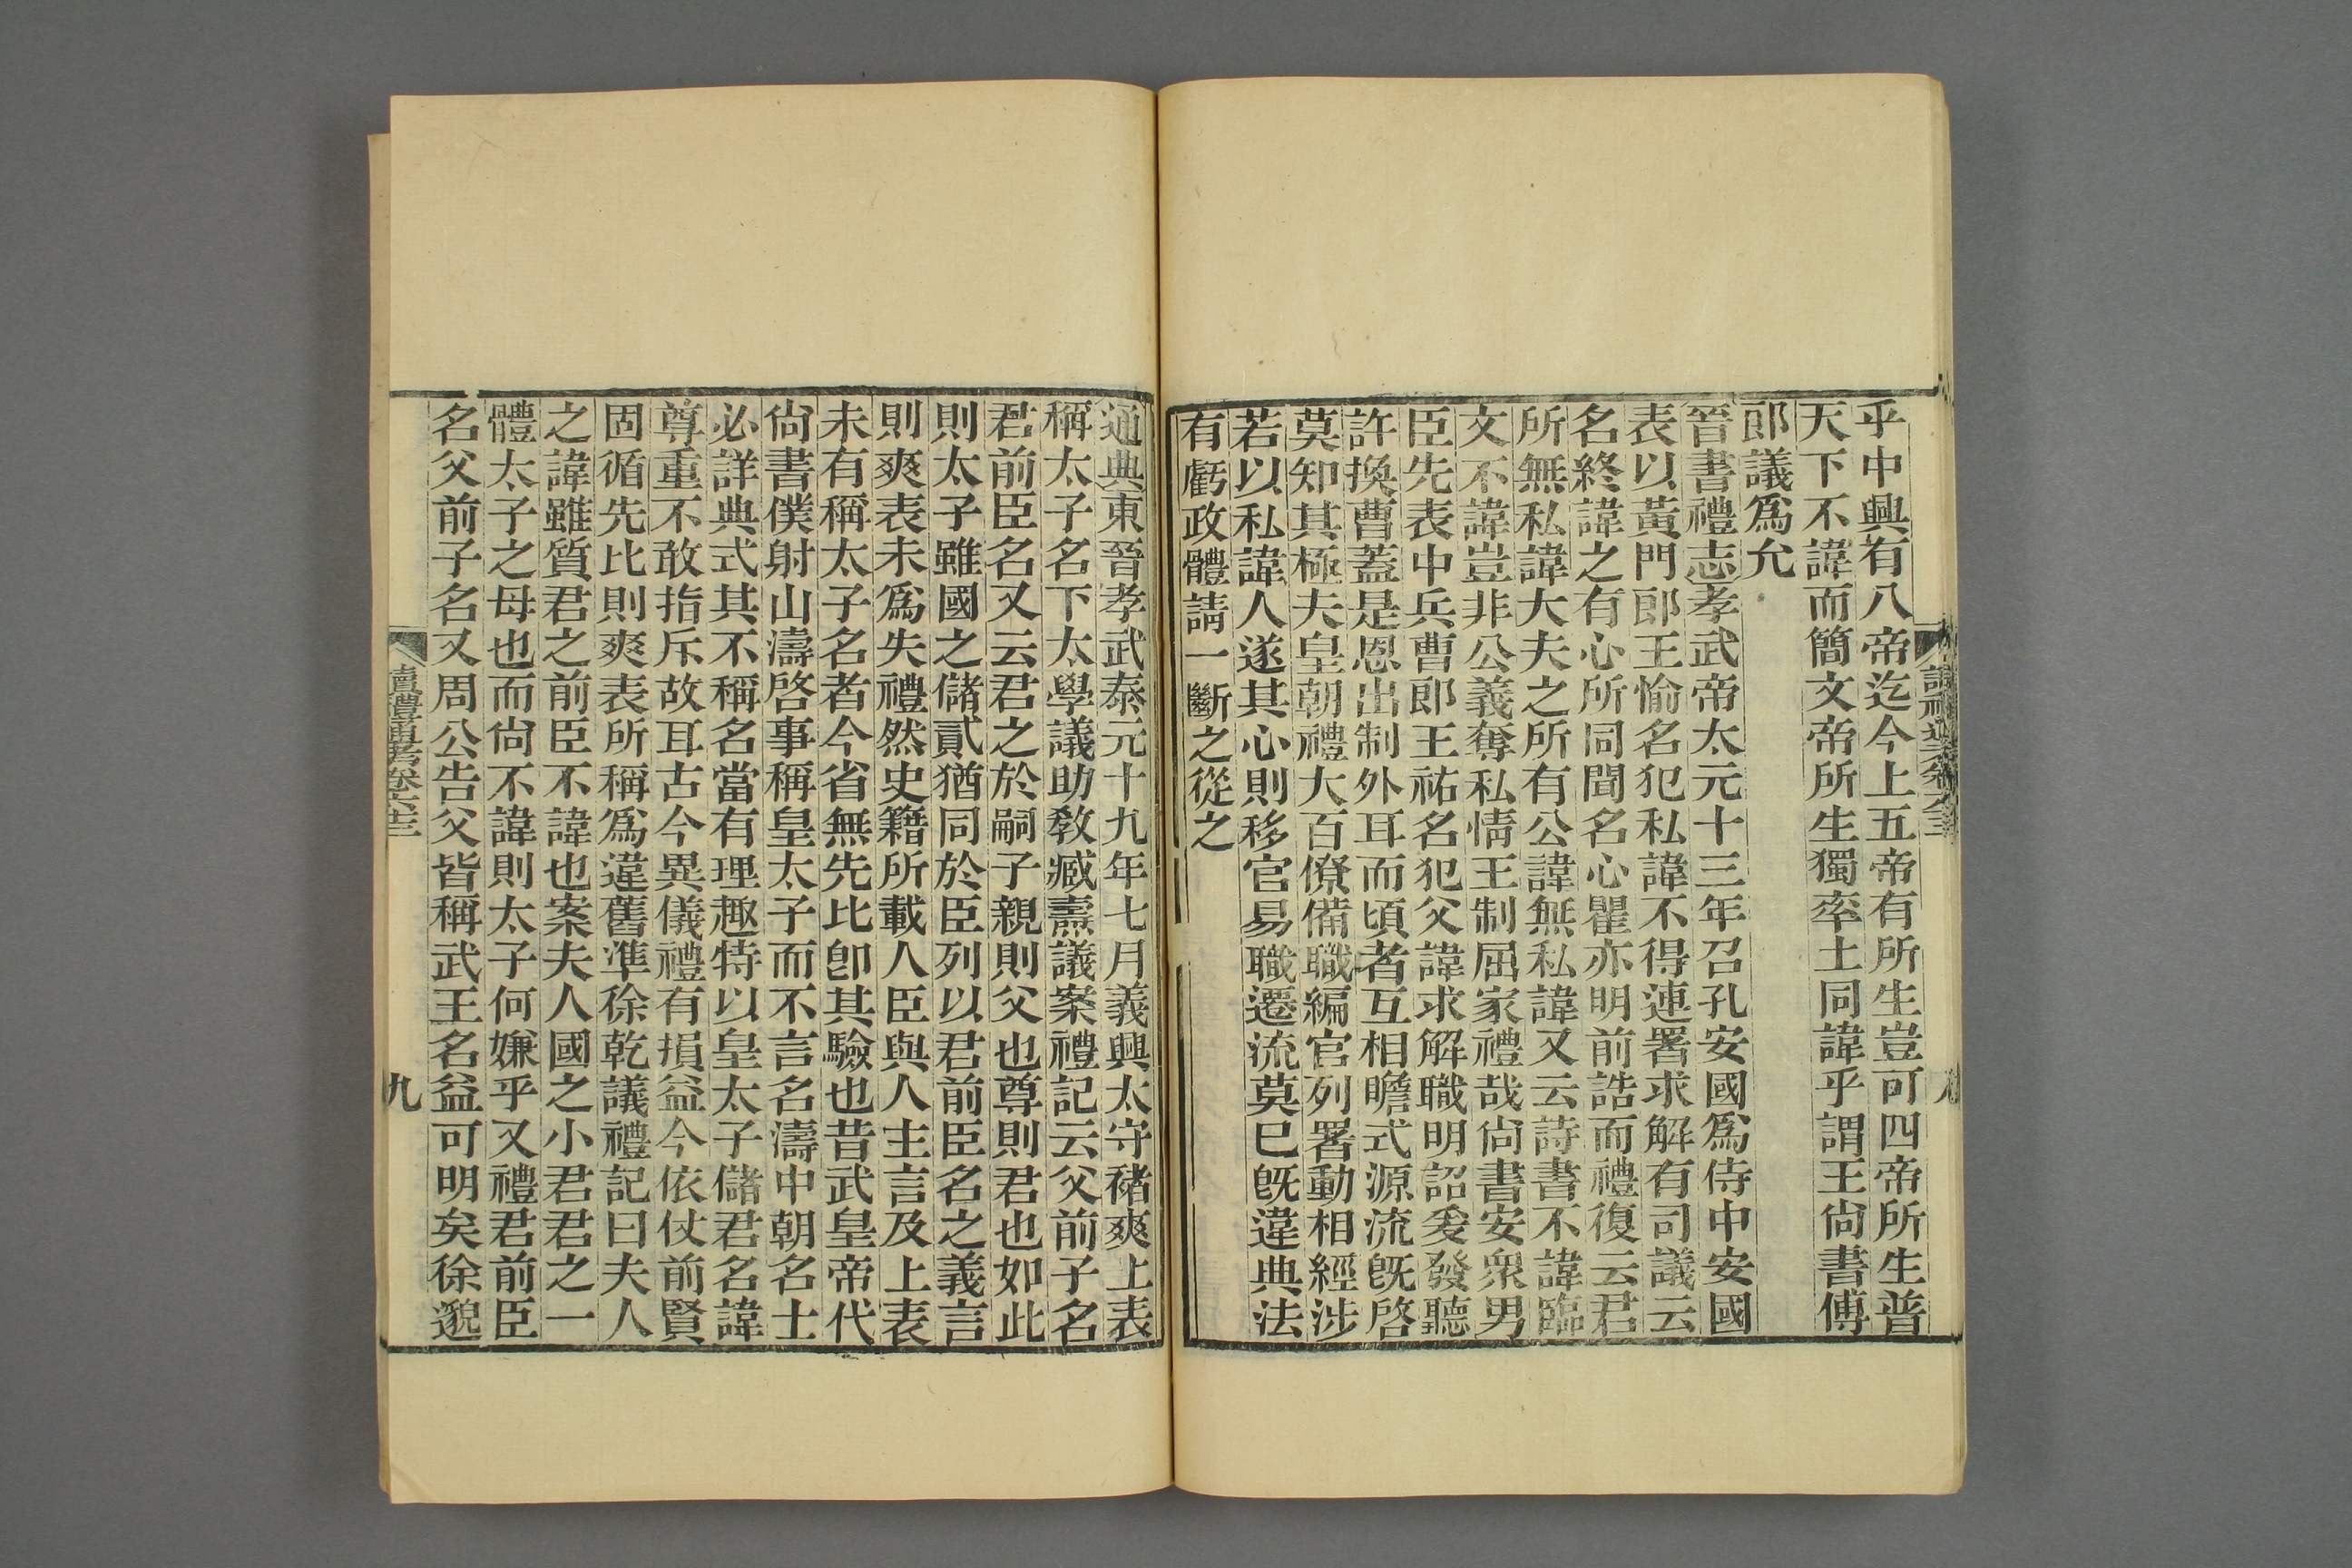 乎中興有八帝迄今上五帝有所生豈可四帝所生普
天下不諱而簡文帝所生獨率土同諱乎謂王尙書傅
郎議爲允
晉書禮志孝武帝太元十三年召孔安國爲侍中安國
表以黃門郎王愉名犯私諱不得連署求解有司議云
名終諱之有心所同聞名心瞿亦明前誥而禮復云君
所無私諱大夫之所有公諱無私諱又云詩書不諱臨
文不諱豈非公義奪私情王制屈家禮哉尙書安衆男
臣先表中兵曹郎王祐名犯父諱求解職明詔爰發聽
許換曹蓋是恩出制外耳而頃者互相瞻式源流旣啓
莫知其極夫皇朝禮大百僚備職編官列署動相經涉
若以私諱人遂其心則移官易職遷流莫已旣違典法
有虧政體請一斷之從之
通典東晉孝武泰元十九年七月義興太守褚爽上表
稱太子名下太學議助敎臧燾議案禮記云父前子名
君前臣名又云君之於嗣子親則父也尊則君也如此
則太子雖國之儲貳猶同於臣列以君前臣名之義言
則爽表未爲失禮然史籍所載人臣與人主言及上表
未有稱太子名者今省無先比卽其驗也昔武皇帝代
尙書僕射山濤啓事稱皇太子而不言名濤中朝名士
必詳典式其不稱名當有理趣特以皇太子儲君名諱
尊重不敢指斥故耳古今異儀禮有損益今依仗前賢
固循先比則爽表所稱爲違舊準徐乾議禮記曰夫人
之諱雖質君之前臣不諱也案夫人國之小君君之一
體太子之母也而尙不諱則太子何嫌乎又禮君前臣
名父前子名又周公告父皆稱武王名益可明矣徐邈
讀禮通考卷六十三
九